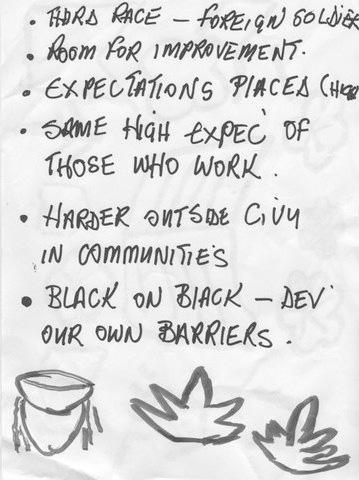 • THIRD RACE – FOREIGN SOLDIER
• ROOM FOR IMPROVEMENT.
• EXPECTATIONS PLACED
• SAME HIGH EXPEC' OF
THOSE WHO WORK.
• HARDER OUTSIDE CIVVY
IN COMMUNITIES
• BLACK ON BLACK – DEV'
OUR OWN BARRIERS.